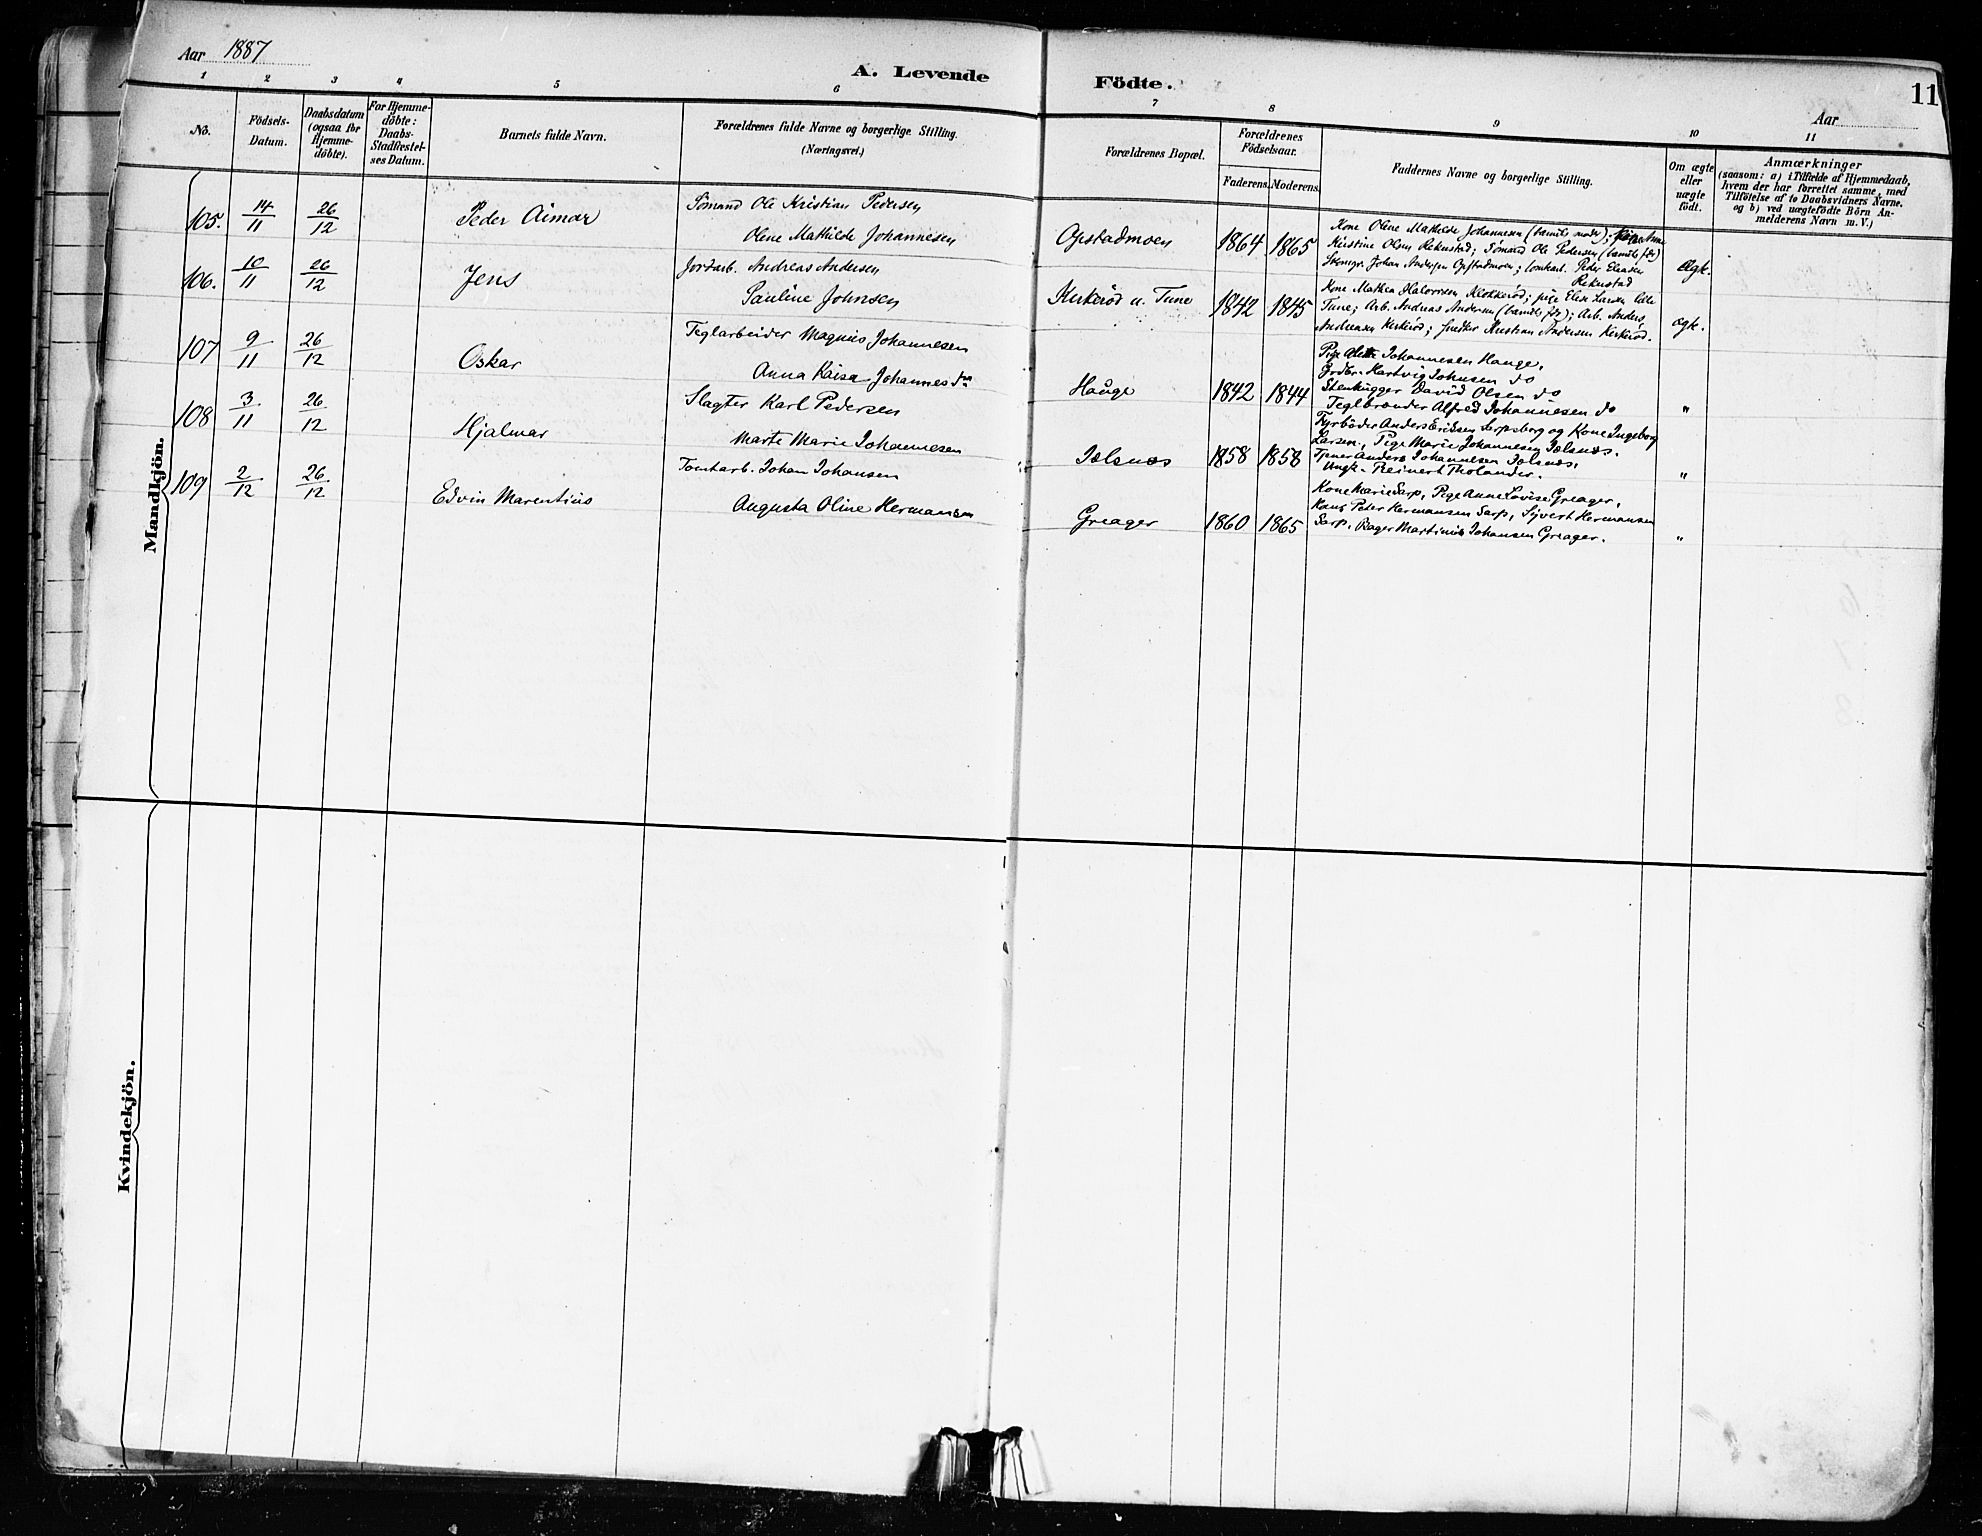 Aar 1887
A. Levende
Födte.
Aar
11
1 2 3 4 5 6 7 8 9 10 11
No.
Födsels-Datum.
Daabsdatum (ogsaa for Hjemme-döbte).
For Hjemme-döbte: Daabs-Stadfæstel-ses Datum.
Barnets fulde Navn.
Forældrenes fulde Navne og borgerlige Stilling.
(Næringsvei.)
Forældrenes Bopæl.
Forældrenes Födselsaar.
Faderens. Moderens.
Faddernes Navne og borgerlige Stilling.
Om ægte eller uægte födt.
Anmærkninger
(saasom: a) i Tilfælde af Hjemmedaab,
hvem der har forrettet samme, med
Tilföielse af to Daabsvidners Navne.
og b) ved uægtefödte Börn An-
melderens Navn m. V.)
Mandkjön.
105. 14/11 26/12 Peder Aimar
Sömand Ole Kristian Pedersen
Olene Mathilde Johannesen
Opstadmoen 1864 1865
Kone Olene Mathilde Johannesen (barnets moder); Pige Anne
Kristine Olsen Rekustad; Sömand Ole Pedersen (barnets fdr)
Stengr. Johan Andersen Opstadmoen; Peder Elensen
Rekustad
Ægt.
106. 10/11 26/12 Jens
Jordarb. Andreas Andersen
Pauline Johnsen
Kirkeröd u. Tune 1842 1845
Kone Mathea Halvorsen Klokkeröd; pige Elise Larsen
Tune; Arb. Andreas Andersen (barnets fdr); Arb. Anders
Andreasen Kirkeröd; Snedker Kristian Andersen Kirkeröd.
ægt.
107 9/11 26/12 Oskar
Teglarbeider Magnus Johannesen
Anna Kaisa Johannesdr
Hauge 1842 1844
Pige Johannesen Hauge,
Hartvig Johnsen do
Stenhugger David Olsen do
Teglbrænder Alfred Johannesen do
"
108 3/11 26/12 Hjalmar
Slagter Karl Pedersen
Marte Marie Johannesen
Jelsnæs 1858 1858
Fyrböder Anders Eriksen Sarpsborg og Kone Ingeborg
Larsen, Pige Marie Johannesen Jelsnæs.
Tjener Anders Johannesen Jelsnæs,
Ungk. Reinert Tholander.
"
109 2/12 26/12 Edvin Marentius
Tomtarb. Johan Johansen
Augusta Oline Hermansen
Greager 1860 1865
Kone Marie Sarp, Pige Anne Lovise Greager,
Peter Hermansen Sarp, Sivert Hermansen
Sarp, Bager Martinius Johansen Greager.
"
Kvindekjön.